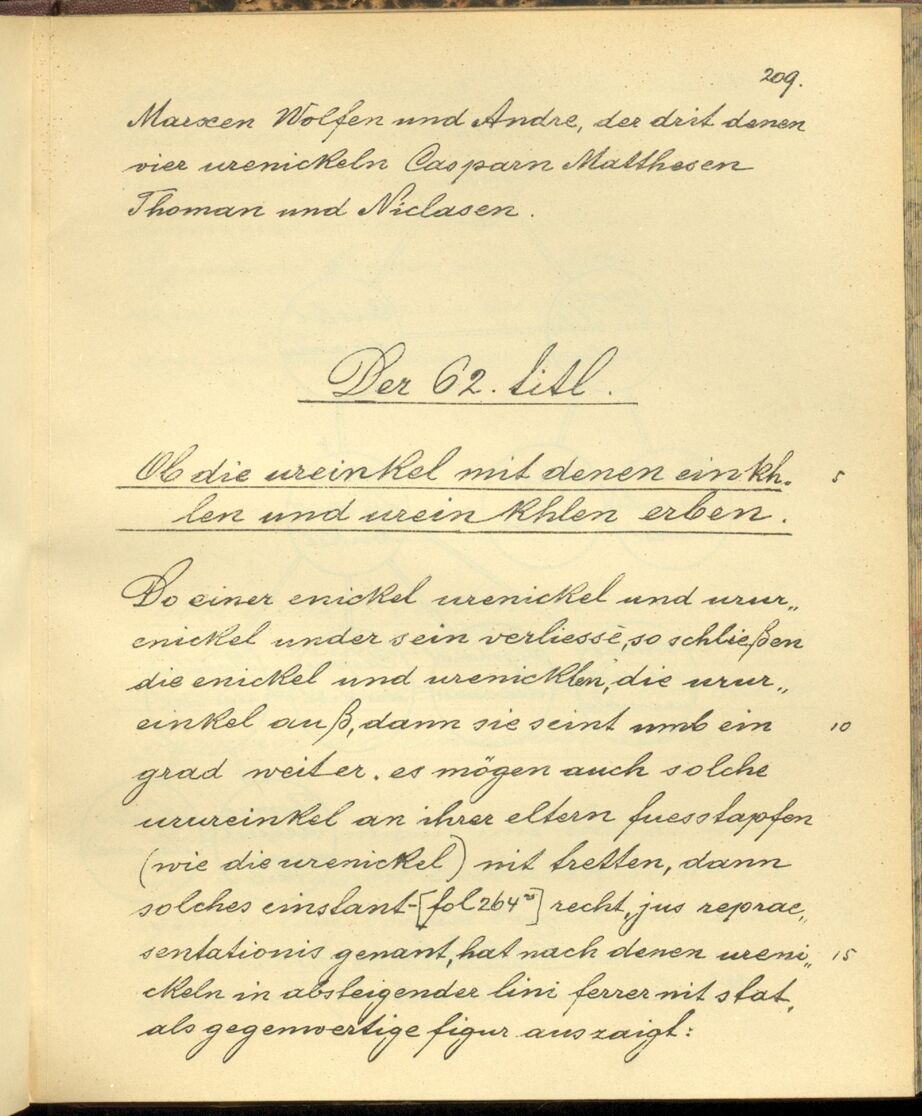 209.
Marxen Wolfen und Andre, der drit denen
vier urenickeln Casparn Matthesen
Thoman und Niclasen.
Der 62. titl.
Ob die ureinkel mit denen einkh-
len und ureinkhlen erben.
5
Do einer enickel urenickel und urur„
enickel under sein verliesse, so schließen
die enickel und urenicklen, die urur„
einkel auß, dann sie seint umb ein
10
grad weiter. es mögen auch solche
urureinkel an ihrer eltern fuesstapfen
(wie die urenickel) nit tretten, dann
solches einstant-[fol 264v] recht, jus reprae„
sentationis genant, hat nach denen ureni„
15
ckeln in absteigender lini ferrer nit stat,
als gegenwertige figur auszaigt: